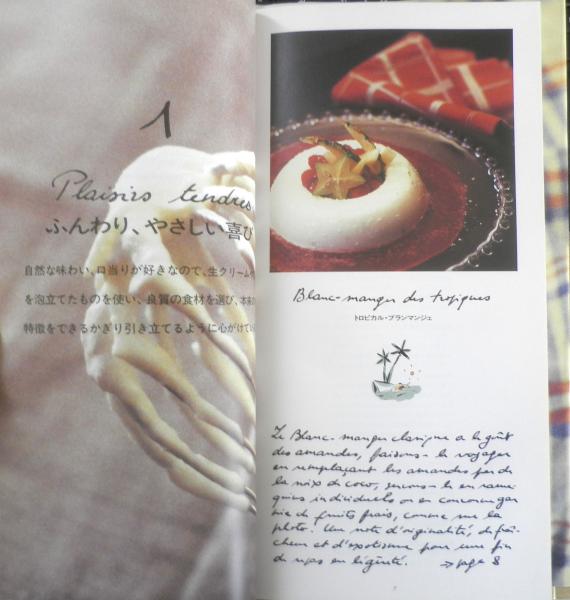 1
Plaisirs tendres
ふんわり、やさしい喜び
自然な味わい、口当りが好きなので、生クリームや
を泡立てたものを使い、良質の食材を選び、本来の
特徴をできるかぎり引き立てるように心がけてい
Blanc-manger des tropiques
トロピカル・ブランマンジェ
Le Blanc-manger classique a le goût
des amandes, faisons-le voyager
en remplaçant les amandes par de
la noix de coco, servons-le en rame
quins individuels ou en couronne gar
nie de fruits frais, comme sur la
photo. Une note d'originalité, de fraî-
cheur et d'exotisme pour une fin
de repas en légèreté. → page 8
7